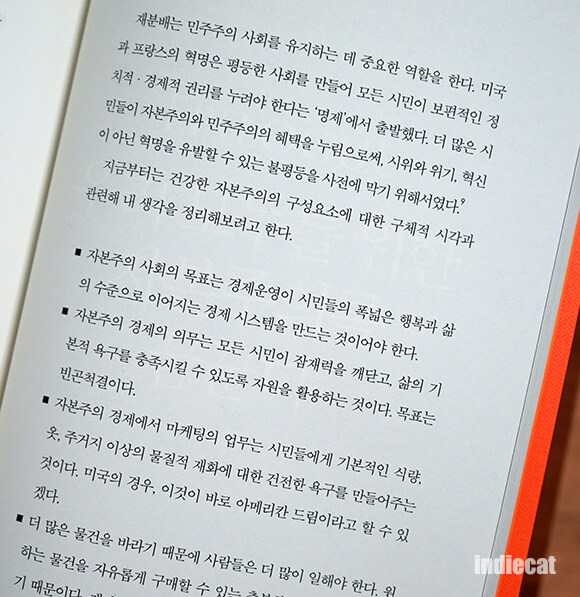 재분배는 민주주의 사회를 유지하는 데 중요한 역할을 한다. 미국
과 프랑스의 혁명은 평등한 사회를 만들어 모든 시민이 보편적인 정
치적·경제적 권리를 누려야 한다는 ‘명제’에서 출발했다. 더 많은 시
민들이 자본주의와 민주주의의 혜택을 누림으로써, 시위와 위기, 혁신
이 아닌 혁명을 유발할 수 있는 불평등을 사전에 막기 위해서였다.⁹
지금부터는 건강한 자본주의의 구성요소에 대한 구체적 시각과
관련해 내 생각을 정리해보려고 한다.
■ 자본주의 사회의 목표는 경제운영이 시민들의 폭넓은 행복과 삶
의 수준으로 이어지는 경제 시스템을 만드는 것이어야 한다.
■ 자본주의 경제의 의무는 모든 시민이 잠재력을 깨닫고, 삶의 기
본적 욕구를 충족시킬 수 있도록 자원을 활용하는 것이다. 목표는
빈곤척결이다.
■ 자본주의 경제에서 마케팅의 업무는 시민들에게 기본적인 식량,
옷, 주거지 이상의 물질적 재화에 대한 건전한 욕구를 만들어주는
것이다. 미국의 경우, 이것이 바로 아메리칸 드림이라고 할 수 있
겠다.
■ 더 많은 물건을 바라기 때문에 사람들은 더 많이 일해야 한다. 원
하는 물건을 자유롭게 구매할 수 있는
기 때문이다.
indiecat